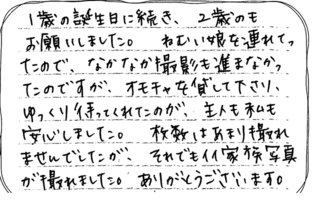 1歳の誕生日に続き、2歳のも
お願いしました。 ねむい娘を連れてっ
たので、なかなか撮影も進まなかっ
たのですが、オモチャを貸して下さり、
ゆっくり待ってくれたのが、主人も私も
安心しました。 枚数はあまり撮れ
ませんでしたが、それでもイイ家族写真
が撮れました。 ありがとうございます。